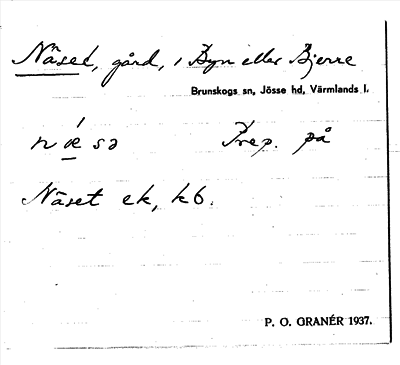 Näset, gård, i Byn eller Bjerre
Brunskogs sn, Jösse hd, Värmlands l.
næ´sə Prep. på
Näset ek, kb.
P. O. GRANÉR 1937.